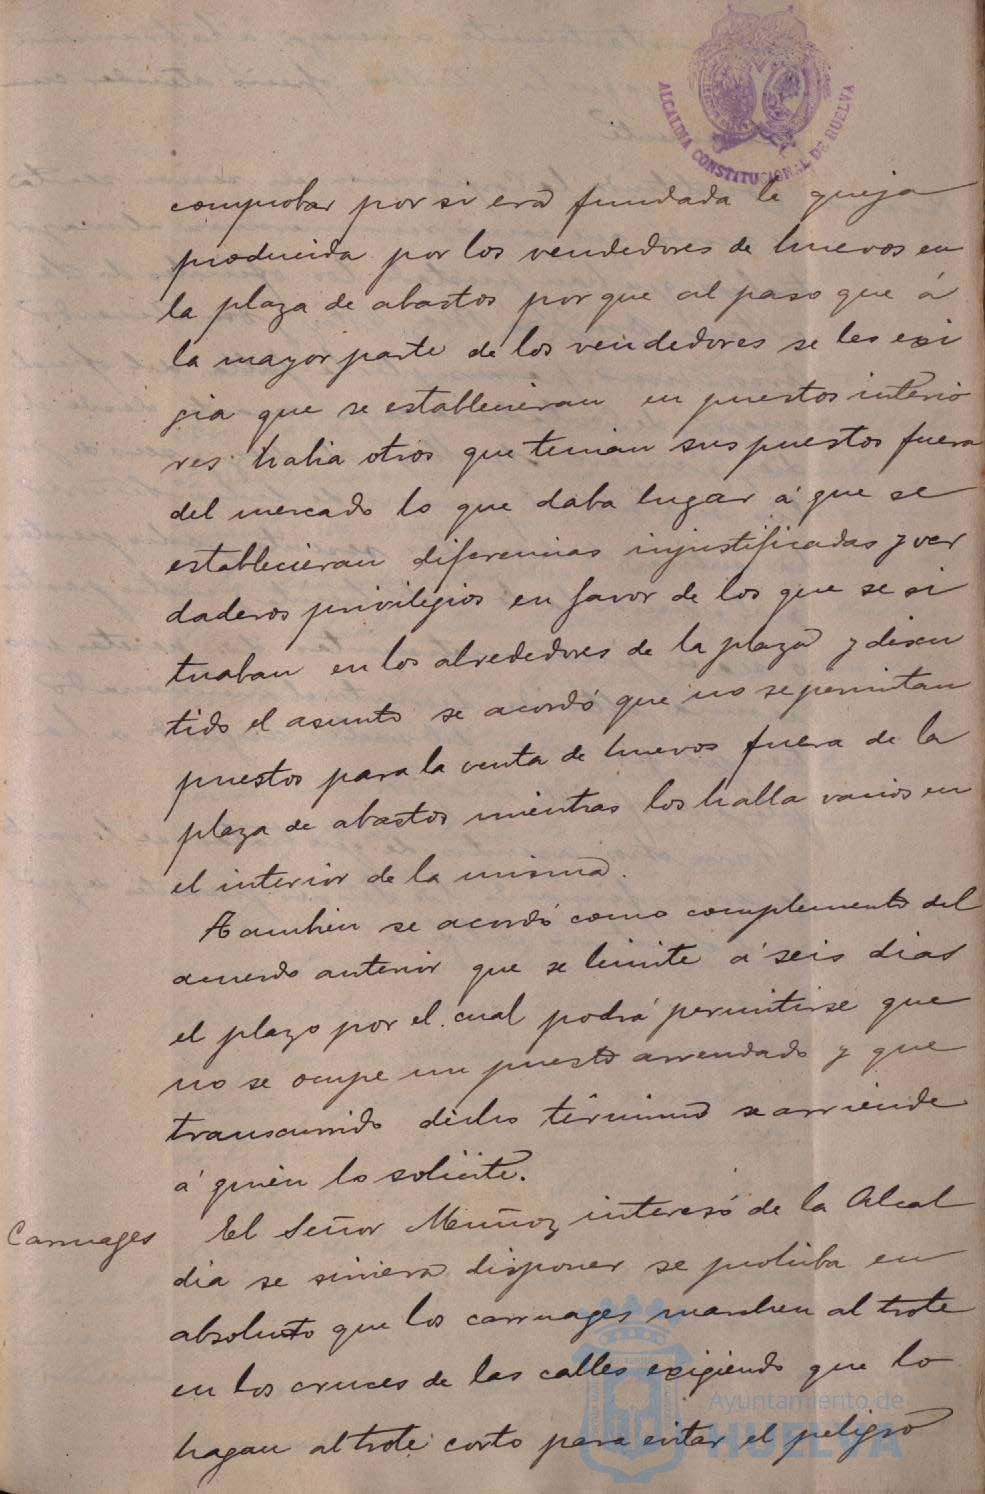 ALCALDIA CONSTITUCIONAL DE HUELVA
comprobar por si era fundada la queja
producida por los vendedores de huevos en
la plaza de abastos porque al paso que á
la mayor parte de los vendedores se les exi
gia que se establecieran en puestos interio
res habia otros que tenian sus puestos fuera
del mercado lo que daba lugar á que se
establecieran diferencias injustificadas y ver
daderos privilegios en favor de los que se si
tuaban en los alrededores de la plaza y discu
tido el asunto se acordó que no se permitan
puestos para la venta de huevos fuera de la
plaza de abastos mientras los halla vacios en
el interior de la misma.
Tambien se acordó como complemento del
acuerdo anterior que se limite á seis dias
el plazo por el cual podrá permitirse que
no se ocupe un puesto arrendado y que
transcurrido dicho término se arriende
á quien lo solicite.
Carruages
El Señor Muñoz interesó de la Alcal
dia se sirviera disponer se prohiba en
absoluto que los carruages marchen al trote
en los cruces de las calles exigiendo que lo
hagan al trote corto para evitar el peligro
Ayuntamiento de
HUELVA